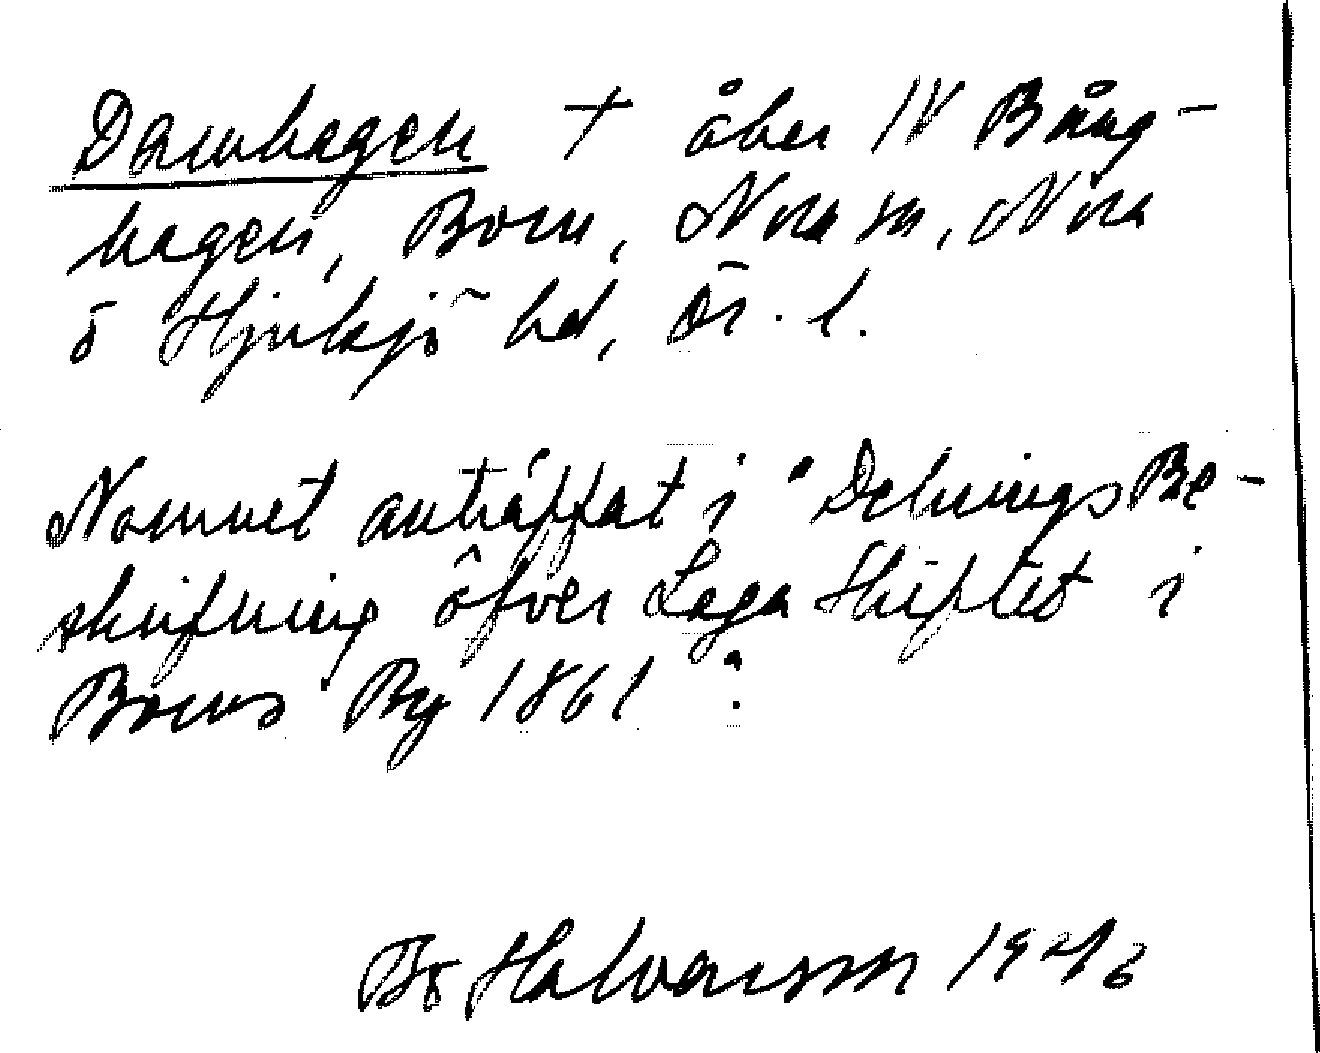 Dammhagen † åker IV Bång-
hagen, Born, Nora sn, Nora
o Hjulsjö hd, Ör. l.
Namnet anträffat i "DelningsBe-
skrifning öfver Laga Skiftet i
Borns By 1861":
Bo Halvarsson